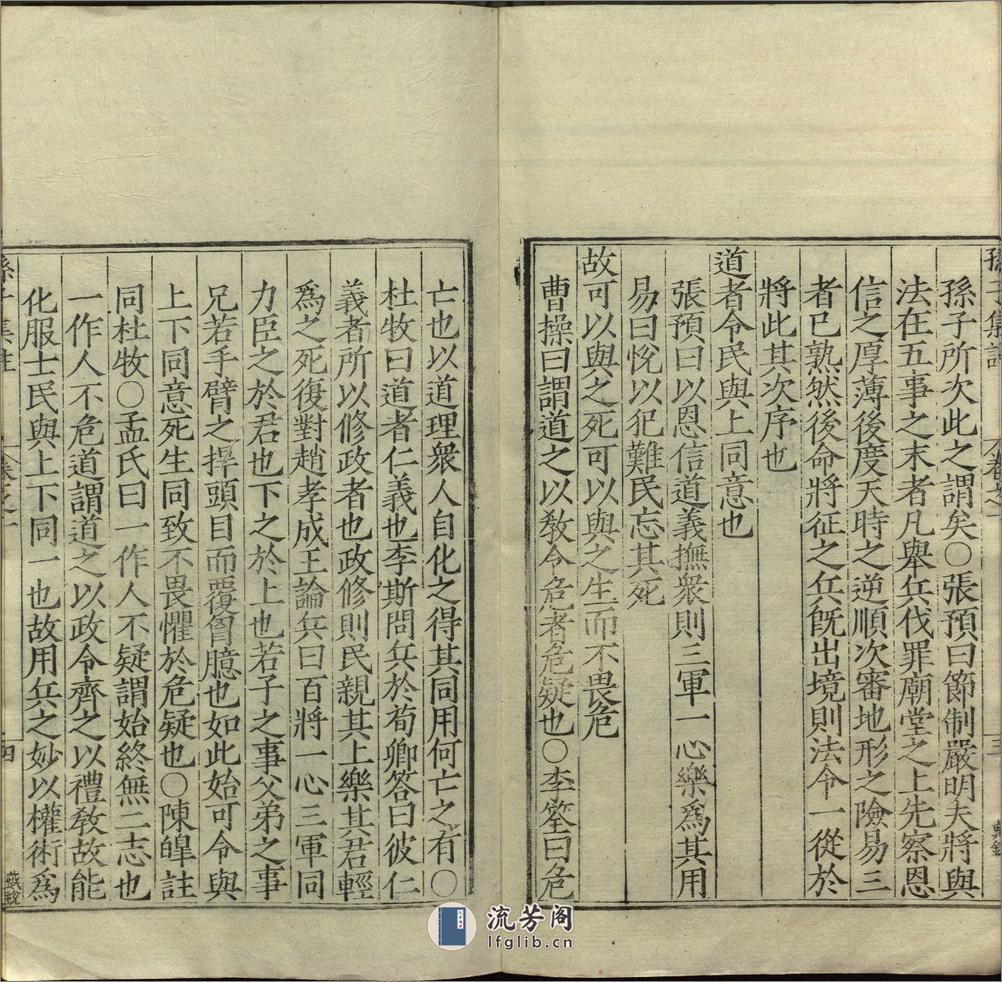 孫子集註
卷之一
三
孫子所次此之謂矣○張預曰節制嚴明夫將與
法在五事之末者凡舉兵伐罪廟堂之上先察恩
信之厚薄後度天時之逆順次審地形之險易三
者已熟然後命將征之兵旣出境則法令一從於
將此其次序也
道者令民與上同意也
張預曰以恩信道義撫衆則三軍一心樂爲其用
易曰恱以犯難民忘其死
故可以與之死可以與之生而不畏危
曹操曰謂道之以敎令危者危疑也○李筌曰危
亡也以道理衆人自化之得其同用何亡之有○
杜牧曰道者仁義也李斯問兵於荀卿答曰彼仁
義者所以修政者也政修則民親其上樂其君輕
爲之死復對趙孝成王論兵曰百將一心三軍同
力臣之於君也下之於上也若子之事父弟之事
兄若手臂之捍頭目而覆胷臆也如此始可令與
上下同意死生同致不畏懼於危疑也○陳皥註
同杜牧○孟氏曰一作人不疑謂始終無二志也
一作人不危道謂道之以政令齊之以禮敎故能
化服士民與上下同一也故用兵之妙以權術爲
孫子集註
卷之一
四
流芳阁
lfglib.cn